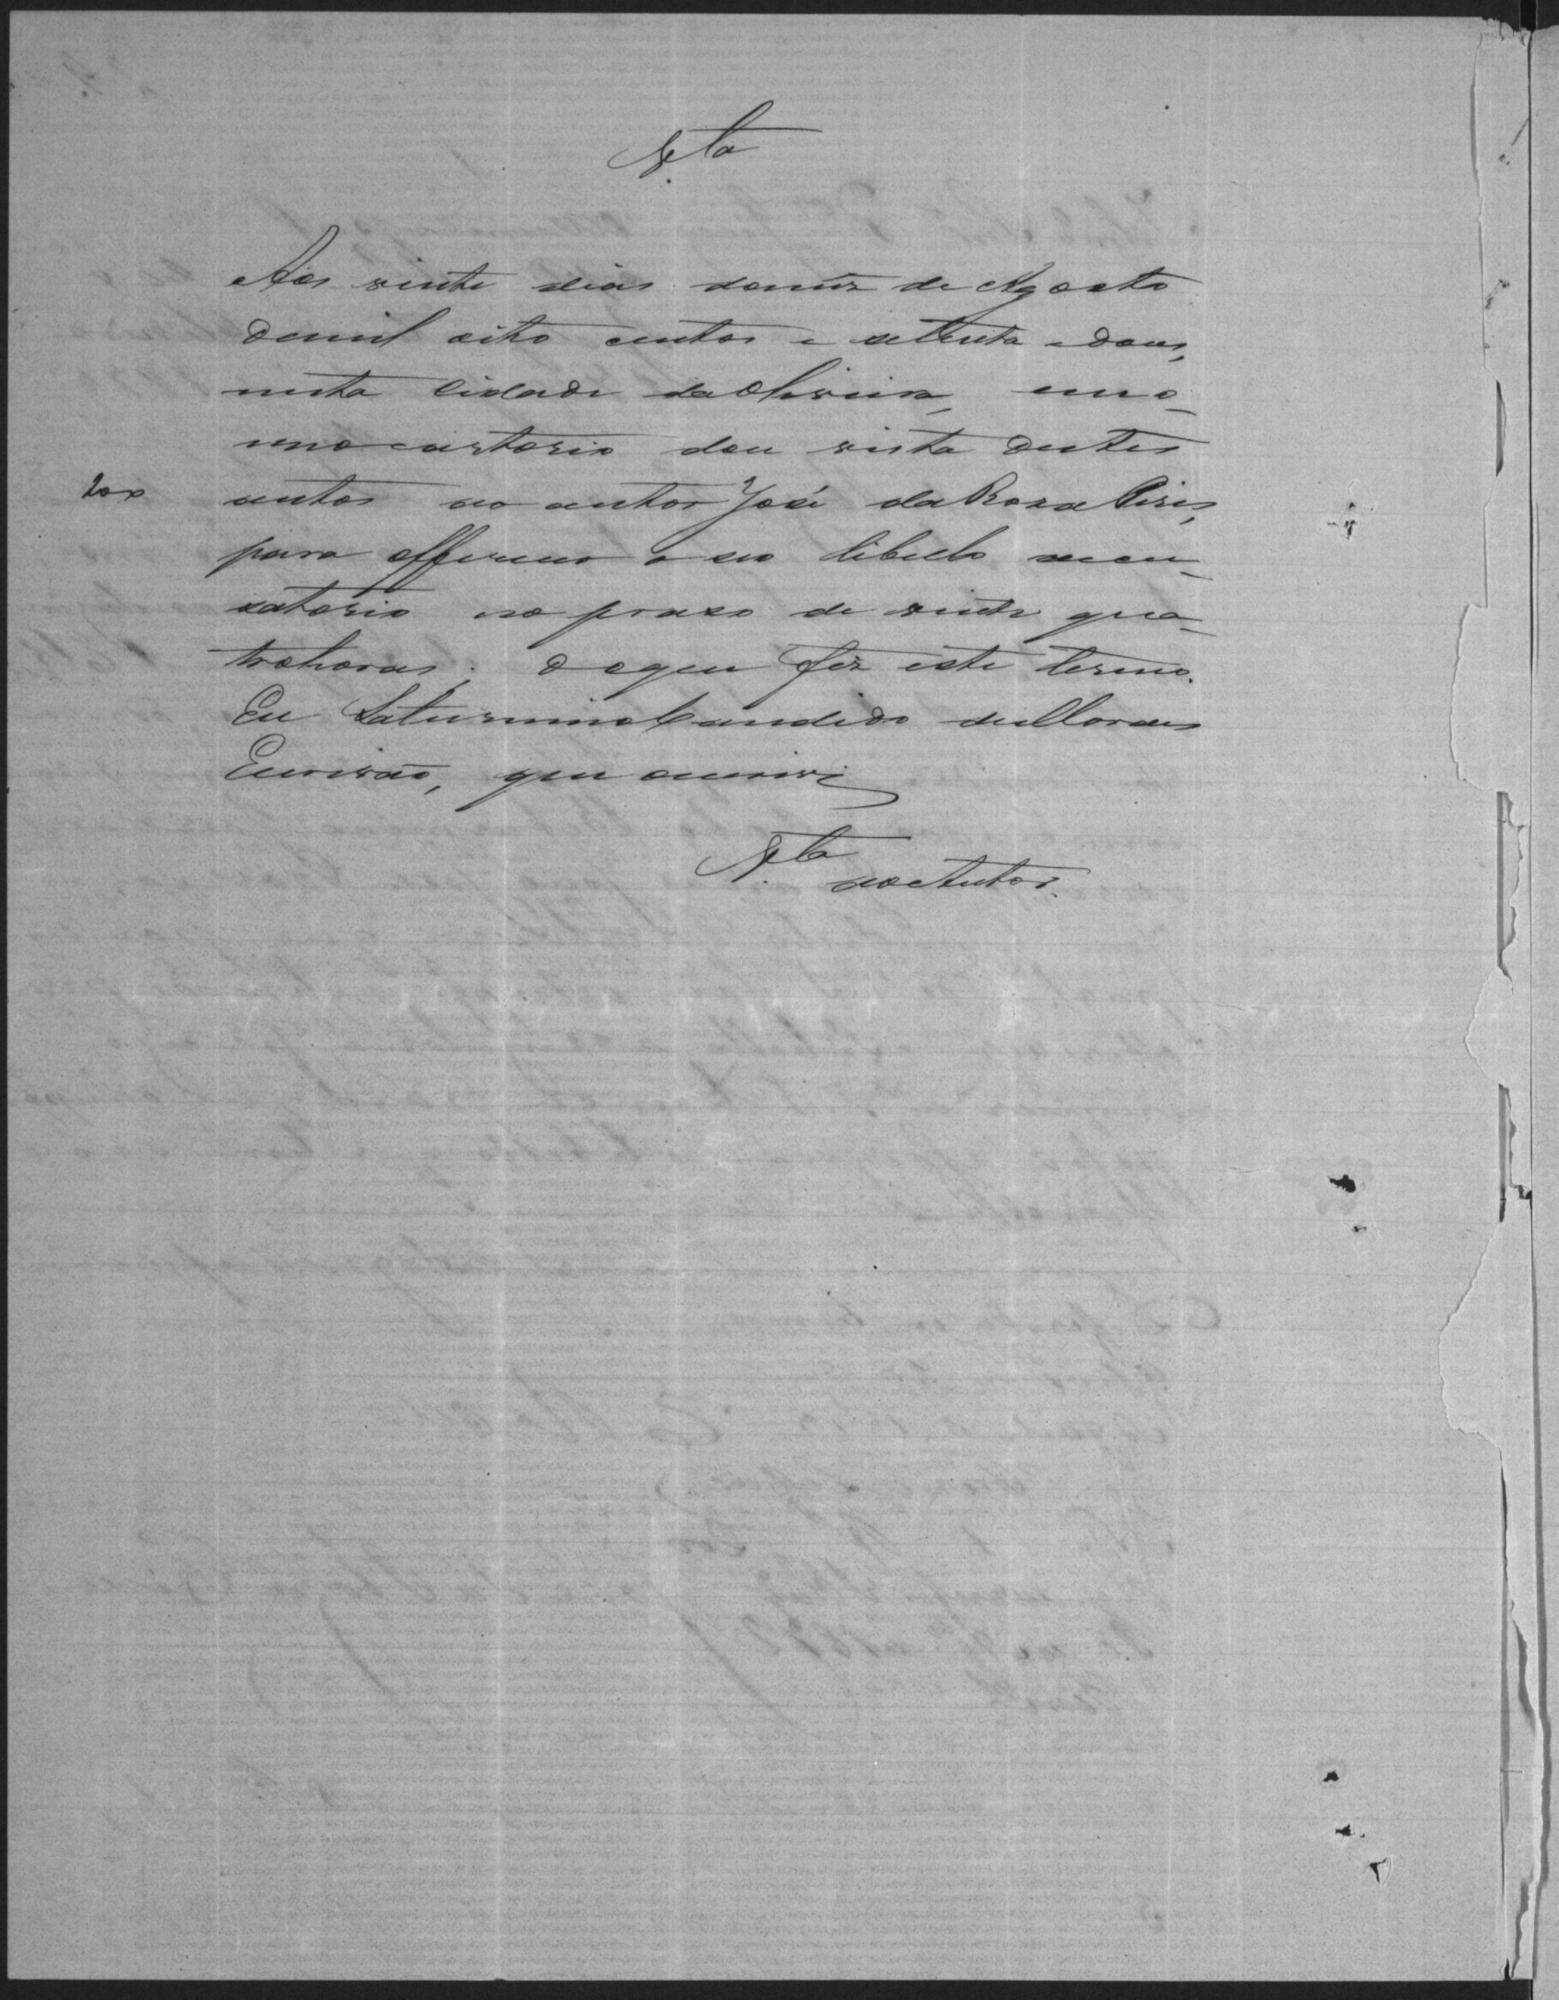 V.ta
Aos vinte dias do mez de Agosto
de mil oito centos e setenta e dous,
nesta Cidade da Oliveira, em o
meo cartorio dou vista destes
200
autos ao autor José da Roza Pires,
para offerecer o seo libello accu-
satorio no praso de vinte qua-
tro horas; do que fiz este termo.
Eu Saturnino Candido de Moraes
Escrivão, que escrevi
V.ta
ao Autor.